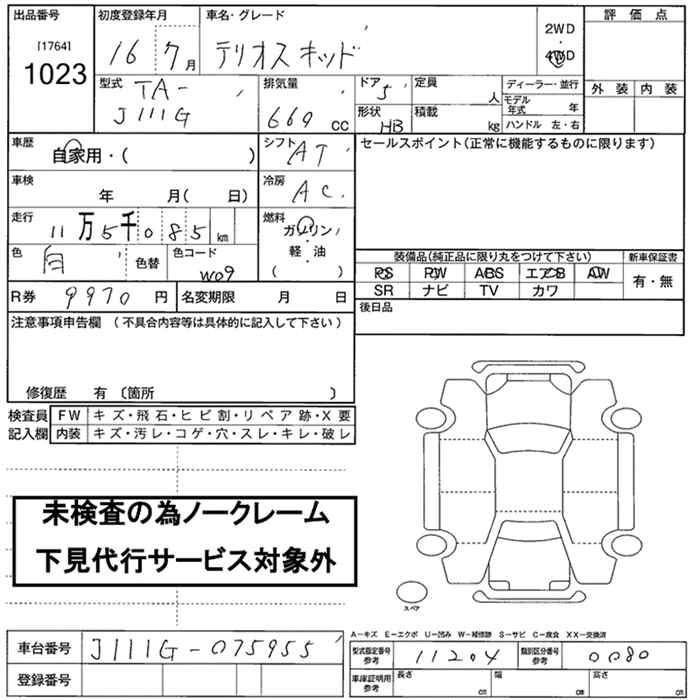 出品番号
[1764]
1023
初度登録年月
16 7月
車名・グレード
テリオスキッド
2WD
・
4WD
評価点
外装 内装
型式
TA-
J111G
排気量
660 cc
ドア 5
形状 HB
定員 人
積載 kg
ディーラー・並行
モデル年式 年
ハンドル 左・右
車歴
自家用・( )
シフト AT
セールスポイント(正常に機能するものに限ります)
車検
年 月( 日)
冷房 AC
走行
11万5千085km
燃料
ガソリン
・
軽・油
( )
色 白
色替
色コード
W09
装備品(純品に限り丸をつけて下さい)
新車保証書
PS PW ABS エアB AW
SR ナビ TV カワ
有・無
R券 9970 円
名変期限 月 日
後日品
注意事項申告欄 (不具合内容等は具体的に記入して下さい)
修復歴 有 〔箇所 〕
検査員記入欄
FW キズ・飛石・ヒビ割・リペア跡・X要
内装 キズ・汚レ・コゲ・穴・スレ・キレ・破レ
未検査の為ノークレーム
下見代行サービス対象外
スペア
A−キズ E−エクボ U−凹み W−補修跡 S−サビ C−腐食 XX−交換済
車台番号 J111G-075955
登録番号
型式指定番号 参考 11204
類別区分番号 参考 0080
車庫証明用 参考
長さ cm
幅 cm
高さ cm